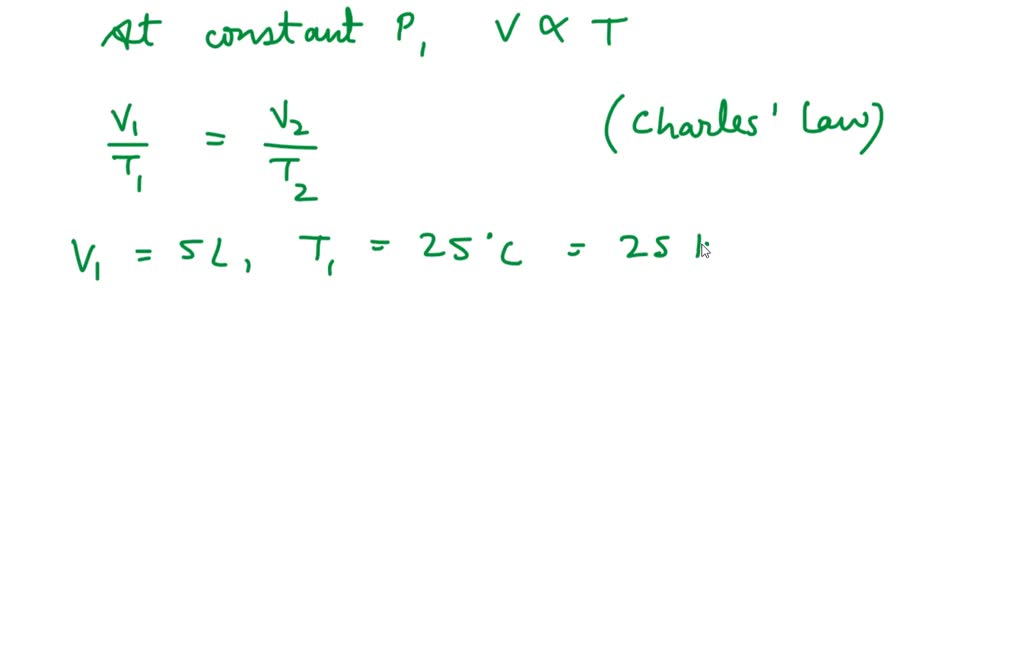 At constant P, V ∝ T
V₁/T₁ = V₂/T₂ (Charles' Law)
V₁ = 5L, T₁ = 25°C = 25